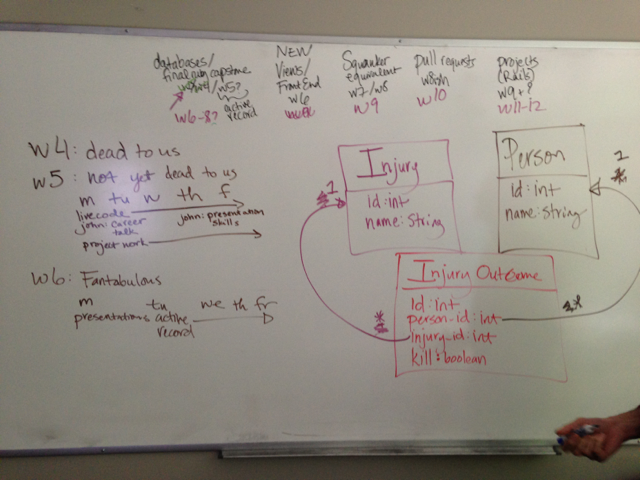 databases/
final gem capstone
w5?
w6-8?
active
record
NEW
Views/
FrontEnd
w6
Squawker
equivalent
w7/w8
w9
pull requests
w8ish
w10
projects
(Rails)
w9+?
w11-12
w4: dead to us
w5: not yet dead to us
m tu w th f
livecode
john: career
talk
john: presentation
skills
project work
w6: Fantabulous
m tu we th fr
presentations active
record
Injury
id: int
name: string
Person
id: int
name: string
1
1
*
Injury Outcome
id: int
person_id: int
injury_id: int
kill: boolean
*